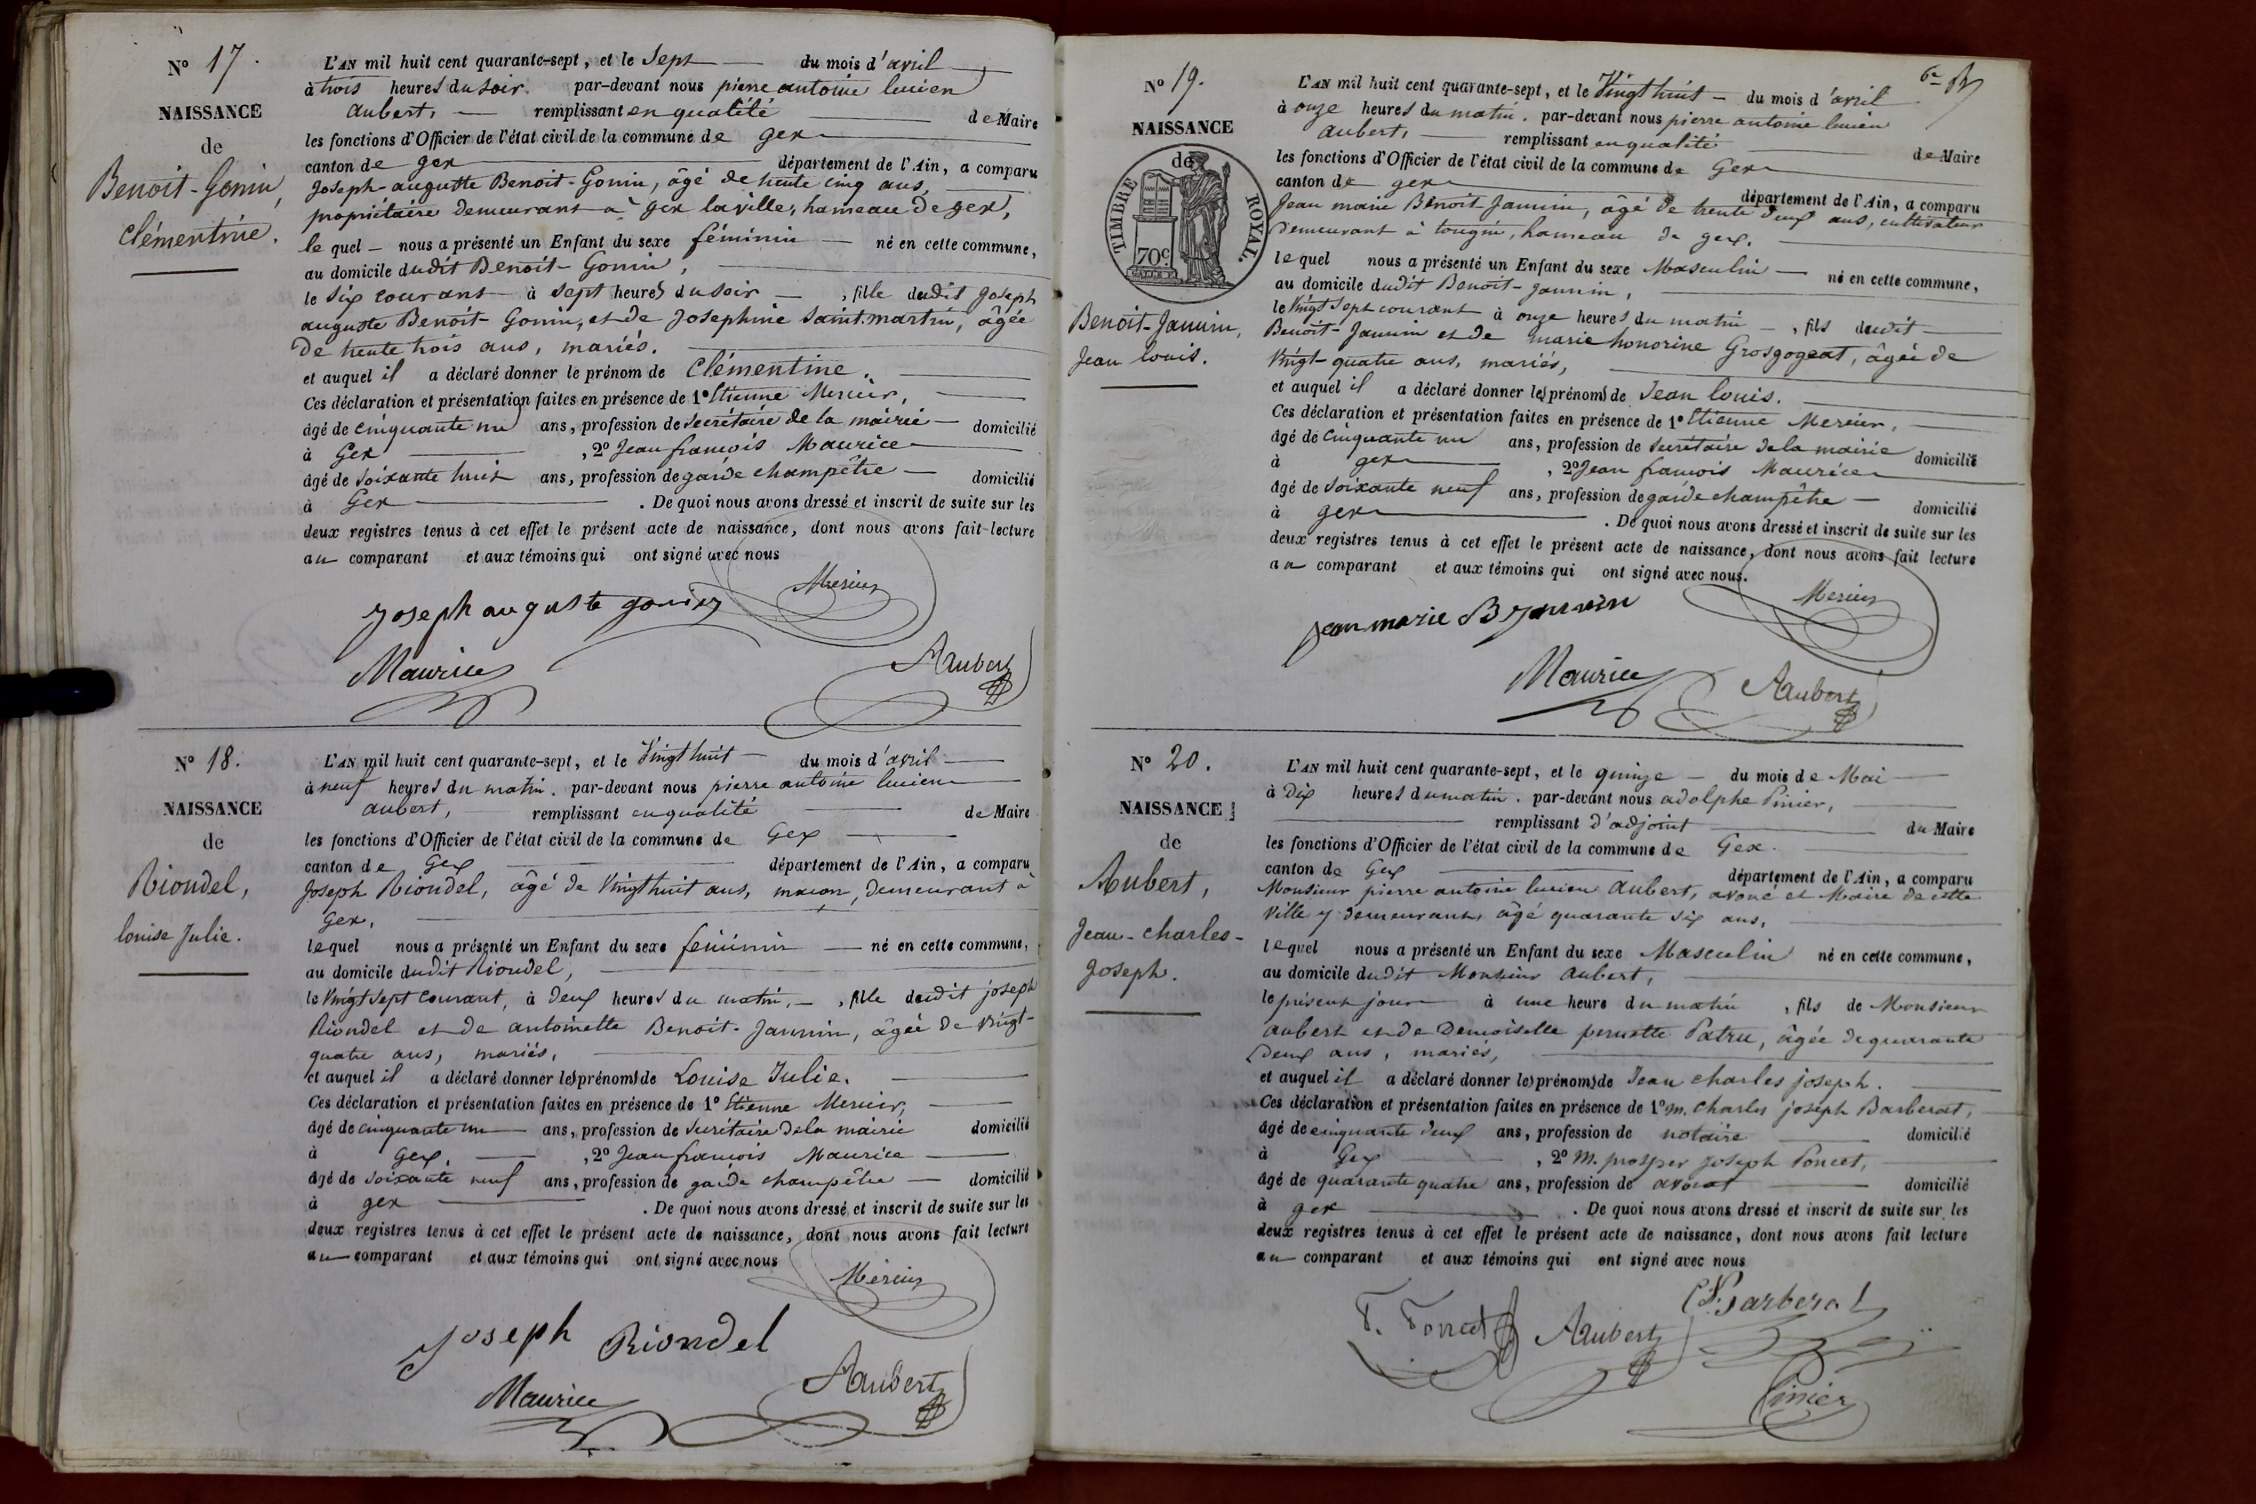 N° 17.
NAISSANCE
de
Benoit-Gonin,
Clémentine.
L'AN mil huit cent quarante-sept, et le Sept du mois d'avril
à trois heures du soir. par-devant nous pierre antoine lucien
aubert, remplissant en qualité de Maire
les fonctions d'Officier de l'état civil de la commune de gex
canton de gex département de l'Ain, a comparu
Joseph-auguste Benoit-Gonin, âgé de trente cinq ans,
propriétaire demeurant à gex la ville, hameau de gex,
le quel nous a présenté un Enfant du sexe féminin né en cette commune,
au domicile dudit Benoit-Gonin,
le six courant à sept heures du soir, fille dudit Joseph
auguste Benoit-Gonin, et de Josephine Saint-martin, âgée
de trente trois ans, mariés.
et auquel il a déclaré donner le prénom de Clémentine.
Ces déclaration et présentation faites en présence de 1° Etienne Mercier,
âgé de cinquante un ans, profession de Secrétaire de la mairie domicilié
à Gex, 2° Jean françois Maurice
âgé de soixante huit ans, profession de garde champêtre domicilié
à Gex. De quoi nous avons dressé et inscrit de suite sur les
deux registres tenus à cet effet le présent acte de naissance, dont nous avons fait lecture
au comparant et aux témoins qui ont signé avec nous
Mercier
Joseph auguste gonin
Maurice
Aubert
N° 18.
NAISSANCE
de
Riondel,
louise Julie.
L'AN mil huit cent quarante-sept, et le Vingt huit du mois d'avril
à neuf heures du matin. par-devant nous pierre antoine lucien
aubert, remplissant en qualité de Maire
les fonctions d'Officier de l'état civil de la commune de Gex
canton de Gex département de l'Ain, a comparu
Joseph Riondel, âgé de Vingt huit ans, maçon, demeurant à
Gex,
lequel nous a présenté un Enfant du sexe féminin né en cette commune,
au domicile dudit Riondel,
le Vingt sept courant, à deux heures du matin, fille dudit joseph
Riondel et de antoinette Benoit-Jannin, âgée de vingt-
quatre ans, mariés,
et auquel il a déclaré donner le(s) prénom(s) de Louise Julie.
Ces déclaration et présentation faites en présence de 1° Etienne Mercier,
âgé de cinquante un ans, profession de Secrétaire de la mairie domicilié
à Gex, 2° Jean françois Maurice
âgé de soixante neuf ans, profession de garde champêtre domicilié
à gex. De quoi nous avons dressé et inscrit de suite sur les
deux registres tenus à cet effet le présent acte de naissance, dont nous avons fait lecture
au comparant et aux témoins qui ont signé avec nous
Mercier
Joseph Riondel
Maurice
Aubert
N° 19.
NAISSANCE
de
TIMBRE ROYAL.
70c
Benoit-Jannin,
Jean louis.
6e
L'AN mil huit cent quarante-sept, et le Vingt huit du mois d'avril
à onze heures du matin. par-devant nous pierre antoine lucien
aubert, remplissant en qualité de Maire
les fonctions d'Officier de l'état civil de la commune de Gex
canton de gex département de l'Ain, a comparu
Jean marie Benoit Jannin, âgé de trente deux ans, cultivateur
demeurant à tougin, hameau de gex.
lequel nous a présenté un Enfant du sexe Masculin né en cette commune,
au domicile dudit Benoit-Jannin,
le Vingt sept courant à onze heures du matin, fils dudit
Benoit-Jannin et de marie honorine Grosgogeat, âgée de
Vingt-quatre ans, mariés,
et auquel il a déclaré donner le(s) prénom(s) de Jean louis.
Ces déclaration et présentation faites en présence de 1° Etienne Mercier,
âgé de cinquante un ans, profession de Secrétaire de la mairie domicilié
à gex, 2° Jean françois Maurice
âgé de soixante neuf ans, profession de garde champêtre domicilié
à gex. De quoi nous avons dressé et inscrit de suite sur les
deux registres tenus à cet effet le présent acte de naissance, dont nous avons fait lecture
au comparant et aux témoins qui ont signé avec nous.
Mercier
jean marie B Jannin
Maurice
Aubert
N° 20.
NAISSANCE
de
Aubert,
Jean-charles-
Joseph.
L'AN mil huit cent quarante-sept, et le quinze du mois de Mai
à Dix heures du matin. par-devant nous adolphe Pinier,
remplissant d'adjoint du Maire
les fonctions d'Officier de l'état civil de la commune de Gex.
canton de Gex département de l'Ain, a comparu
Monsieur pierre antoine lucien aubert, avoué et Maire de cette
Ville y demeurant, âgé quarante six ans,
lequel nous a présenté un Enfant du sexe Masculin né en cette commune,
au domicile dudit Monsieur aubert,
le présent jour à une heure du matin, fils de Monsieur
aubert et de Demoiselle pernette Patru, âgée de quarante
deux ans, mariés,
et auquel il a déclaré donner le(s) prénom(s) de Jean charles joseph.
Ces déclaration et présentation faites en présence de 1° m. charles joseph Barberat,
âgé de cinquante deux ans, profession de notaire domicilié
à Gex, 2° m. prosper joseph Poncet,
âgé de quarante quatre ans, profession de avocat domicilié
à gex. De quoi nous avons dressé et inscrit de suite sur les
deux registres tenus à cet effet le présent acte de naissance, dont nous avons fait lecture
au comparant et aux témoins qui ont signé avec nous
Barberat
P. Poncet
Aubert
Pinier